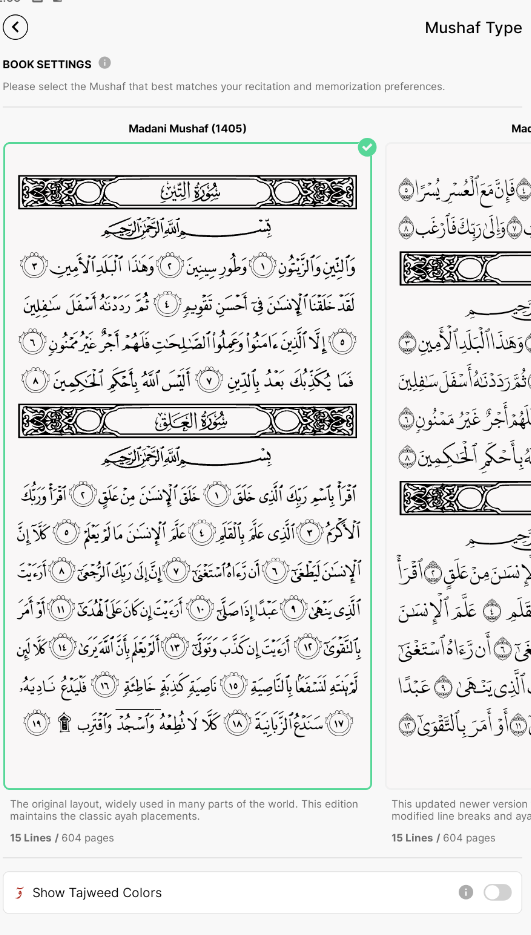 Mushaf Type
BOOK SETTINGS
Please select the Mushaf that best matches your recitation and memorization preferences.
Madani Mushaf (1405)
سُورَةُ التِّينِ
بِسْمِ اللَّهِ الرَّحْمَٰنِ الرَّحِيمِ
وَٱلتِّينِ وَٱلزَّيْتُونِ ١ وَطُورِ سِينِينَ ٢ وَهَٰذَا ٱلْبَلَدِ ٱلْأَمِينِ ٣
لَقَدْ خَلَقْنَا ٱلْإِنسَٰنَ فِىٓ أَحْسَنِ تَقْوِيمٍ ٤ ثُمَّ رَدَدْنَٰهُ أَسْفَلَ سَٰفِلِينَ
٥ إِلَّا ٱلَّذِينَ ءَامَنُوا۟ وَعَمِلُوا۟ ٱلصَّٰلِحَٰتِ فَلَهُمْ أَجْرٌ غَيْرُ مَمْنُونٍ ٦
فَمَا يُكَذِّبُكَ بَعْدُ بِٱلدِّينِ ٧ أَلَيْسَ ٱللَّهُ بِأَحْكَمِ ٱلْحَٰكِمِينَ ٨
سُورَةُ العَلَقِ
بِسْمِ اللَّهِ الرَّحْمَٰنِ الرَّحِيمِ
ٱقْرَأْ بِٱسْمِ رَبِّكَ ٱلَّذِى خَلَقَ ١ خَلَقَ ٱلْإِنسَٰنَ مِنْ عَلَقٍ ٢ ٱقْرَأْ وَرَبُّكَ
ٱلْأَكْرَمُ ٣ ٱلَّذِى عَلَّمَ بِٱلْقَلَمِ ٤ عَلَّمَ ٱلْإِنسَٰنَ مَا لَمْ يَعْلَمْ ٥ كَلَّآ إِنَّ
ٱلْإِنسَٰنَ لَيَطْغَىٰٓ ٦ أَن رَّءَاهُ ٱسْتَغْنَىٰٓ ٧ إِنَّ إِلَىٰ رَبِّكَ ٱلرُّجْعَىٰٓ ٨ أَرَءَيْتَ
ٱلَّذِى يَنْهَىٰ ٩ عَبْدًا إِذَا صَلَّىٰٓ ١٠ أَرَءَيْتَ إِن كَانَ عَلَى ٱلْهُدَىٰٓ ١١ أَوْ أَمَرَ
بِٱلتَّقْوَىٰٓ ١٢ أَرَءَيْتَ إِن كَذَّبَ وَتَوَلَّىٰٓ ١٣ أَلَمْ يَعْلَم بِأَنَّ ٱللَّهَ يَرَىٰ ١٤ كَلَّا لَئِن
لَّمْ يَنتَهِ لَنَسْفَعًۢا بِٱلنَّاصِيَةِ ١٥ نَاصِيَةٍ كَٰذِبَةٍ خَاطِئَةٍ ١٦ فَلْيَدْعُ نَادِيَهُۥ
١٧ سَنَدْعُ ٱلزَّبَانِيَةَ ١٨ كَلَّا لَا تُطِعْهُ وَٱسْجُدْ وَٱقْتَرِب ۩ ١٩
The original layout, widely used in many parts of the world. This edition
maintains the classic ayah placements.
15 Lines / 604 pages
فَإِنَّ مَعَ ٱلْعُسْرِ يُسْرًا ٥
٧ وَإِلَىٰ رَبِّكَ فَٱرْغَب ٨
وَهَٰذَا ٱلْبَلَدِ ٱلْأَمِينِ ٣
ثُمَّ رَدَدْنَٰهُ أَسْفَلَ سَٰفِلِينَ
فَلَهُمْ أَجْرٌ غَيْرُ مَمْنُونٍ ٦
بِأَحْكَمِ ٱلْحَٰكِمِينَ ٨
مِنْ عَلَقٍ ٢ ٱقْرَأْ
٤ عَلَّمَ ٱلْإِنسَٰنَ
٦ أَن رَّءَاهُ ٱسْتَغْنَىٰٓ
ٱلَّذِى يَنْهَىٰ ٩ عَبْدًا
١١ أَوْ أَمَرَ بِٱلتَّقْوَىٰٓ ١٢
This updated newer version
modified line breaks and
15 Lines / 604 pages
Show Tajweed Colors